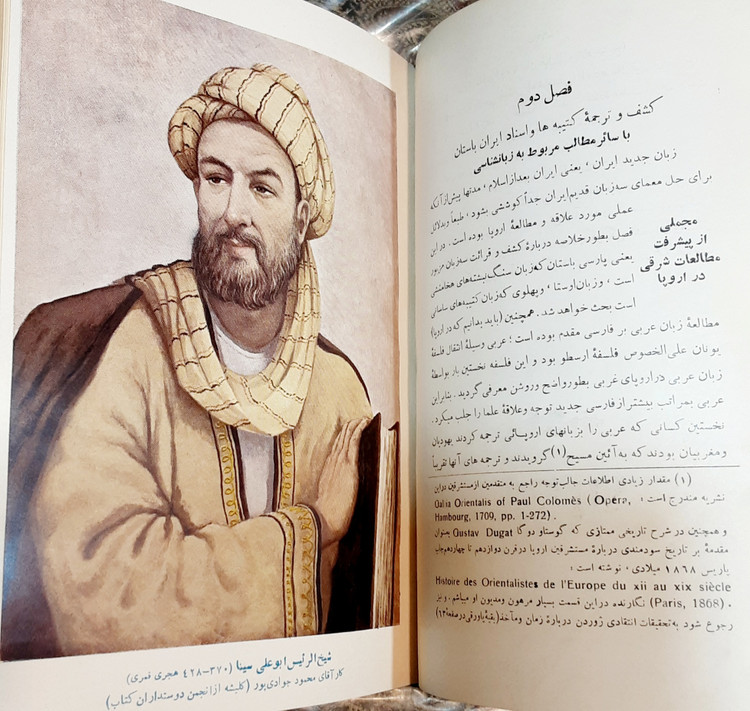 شیخ الرئیس ابوعلی سینا (۳۷۰-۴۲۸ هجری قمری)
کار آقای محمود جوادی‌پور (کلیشه از انجمن دوستداران کتاب)
فصل دوم
کشف و ترجمهٔ کتیبه ها و اسناد ایران باستان
با سائر مطالب مربوط به زبانشناسی
زبان جدید ایران ، یعنی ایران بعد از اسلام ، مدتها پیش از آنکه
برای حل معمای سه زبان قدیم ایران جداً کوششی بشود ، طبعاً و بدلائل
عملی مورد علاقه و مطالعهٔ اروپا بوده است . در این
فصل بطور خلاصه دربارهٔ کشف و قرائت سه زبان مزبور
یعنی پارسی باستان که زبان سنگ نبشته‌های هخامنشی
است ، و زبان اوستا ، و پهلوی که زبان کتیبه‌های ساسانی
است بحث خواهد شد . همچنین (باید بدانیم که در اروپا)
مجملی
از پیشرفت
مطالعات شرقی
در اروپا
مطالعهٔ زبان عربی بر فارسی مقدم بوده است ؛ عربی وسیلهٔ انتقال فلسفهٔ
یونان علی‌الخصوص فلسفهٔ ارسطو بود و این فلسفه نخستین بار بواسطهٔ
زبان عربی در اروپای غربی بطور واضح و روشن معرفی گردید . بنابراین
عربی بمراتب بیشتر از فارسی جدید توجه و علاقهٔ علما را جلب میکرد .
نخستین کسانی که عربی را بزبانهای اروپائی ترجمه کردند یهودیان
و مغربیان بودند که به آئین مسیح (۱) گرویدند و ترجمه های آنها تقریباً
(۱) مقدار زیادی اطلاعات جالب توجه راجع به متقدمین از مستشرقین در این
نشریه مندرج است :
Galia Orientalis of Paul Colomès (Opera,
Hambourg, 1709, pp. 1-272) .
و همچنین در شرح تاریخی ممتازی که گوستاو دوگا Gustav Dugat بعنوان
مقدمهٔ بر تاریخ سودمندی دربارهٔ مستشرقین اروپا در قرن دوازدهم تا چهاردهم چاپ
پاریس ۱۸۶۸ میلادی ، نوشته است :
Histoire des Orientalistes de l'Europe du xii au xix siècle
(Paris, 1868) . نگارنده در این قسمت بسیار مرهون و مدیون او میباشم . و نیز
رجوع شود به تحقیقات انتقادی زوردن دربارهٔ زمان و مآخذ (بقیهٔ پاورقی در صفحهٔ ۶۳)